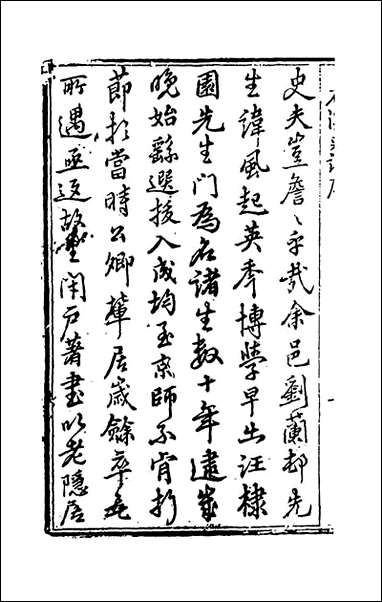 史夫豈詹〻乎哉余邑劉蘭邨先
生諱風起英秊博學早出汪棣
園先生門為名諸生數十年逮歲
晚始繇選拔入成均至京師不肯折
節於當時公卿輦居歲餘卒無
所遇亟返故閉户著書以老隱居